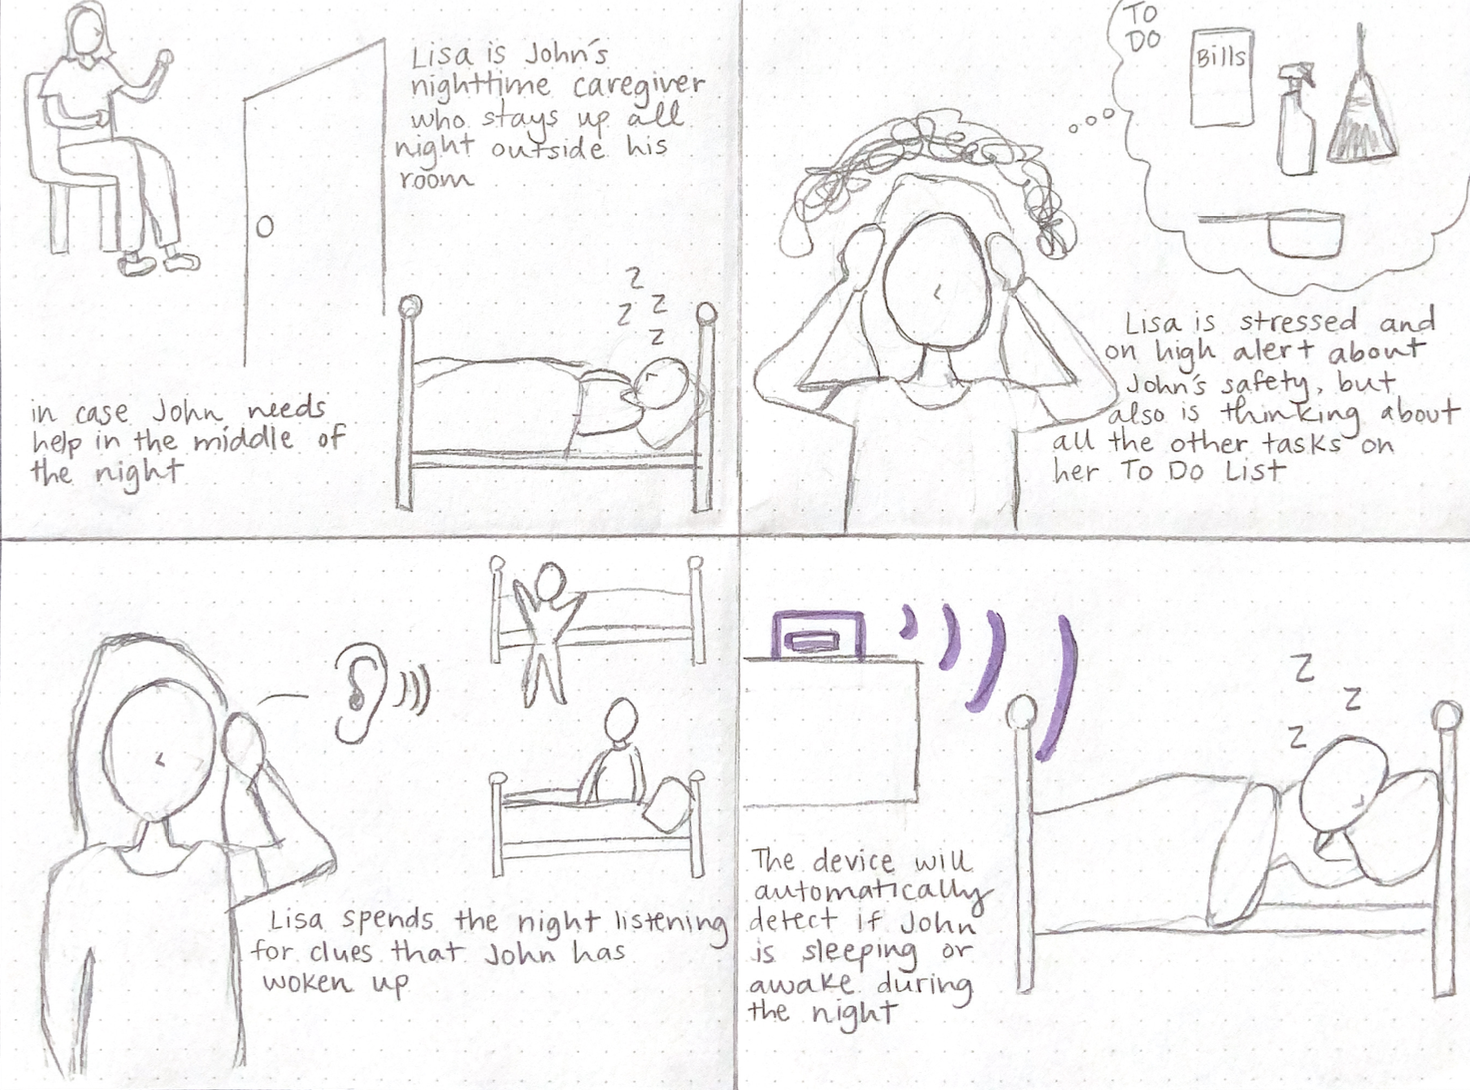 Lisa is John's
nighttime caregiver
who stays up all
night outside his
room
z
z z
z
in case John needs
help in the middle of
the night
TO
DO
Bills
Lisa is stressed and
on high alert about
John's safety, but
also is thinking about
all the other tasks on
her To Do List
Lisa spends the night listening
for clues that John has
woken up
z
z
z
The device will
automatically
detect if John
is sleeping or
awake during
the night